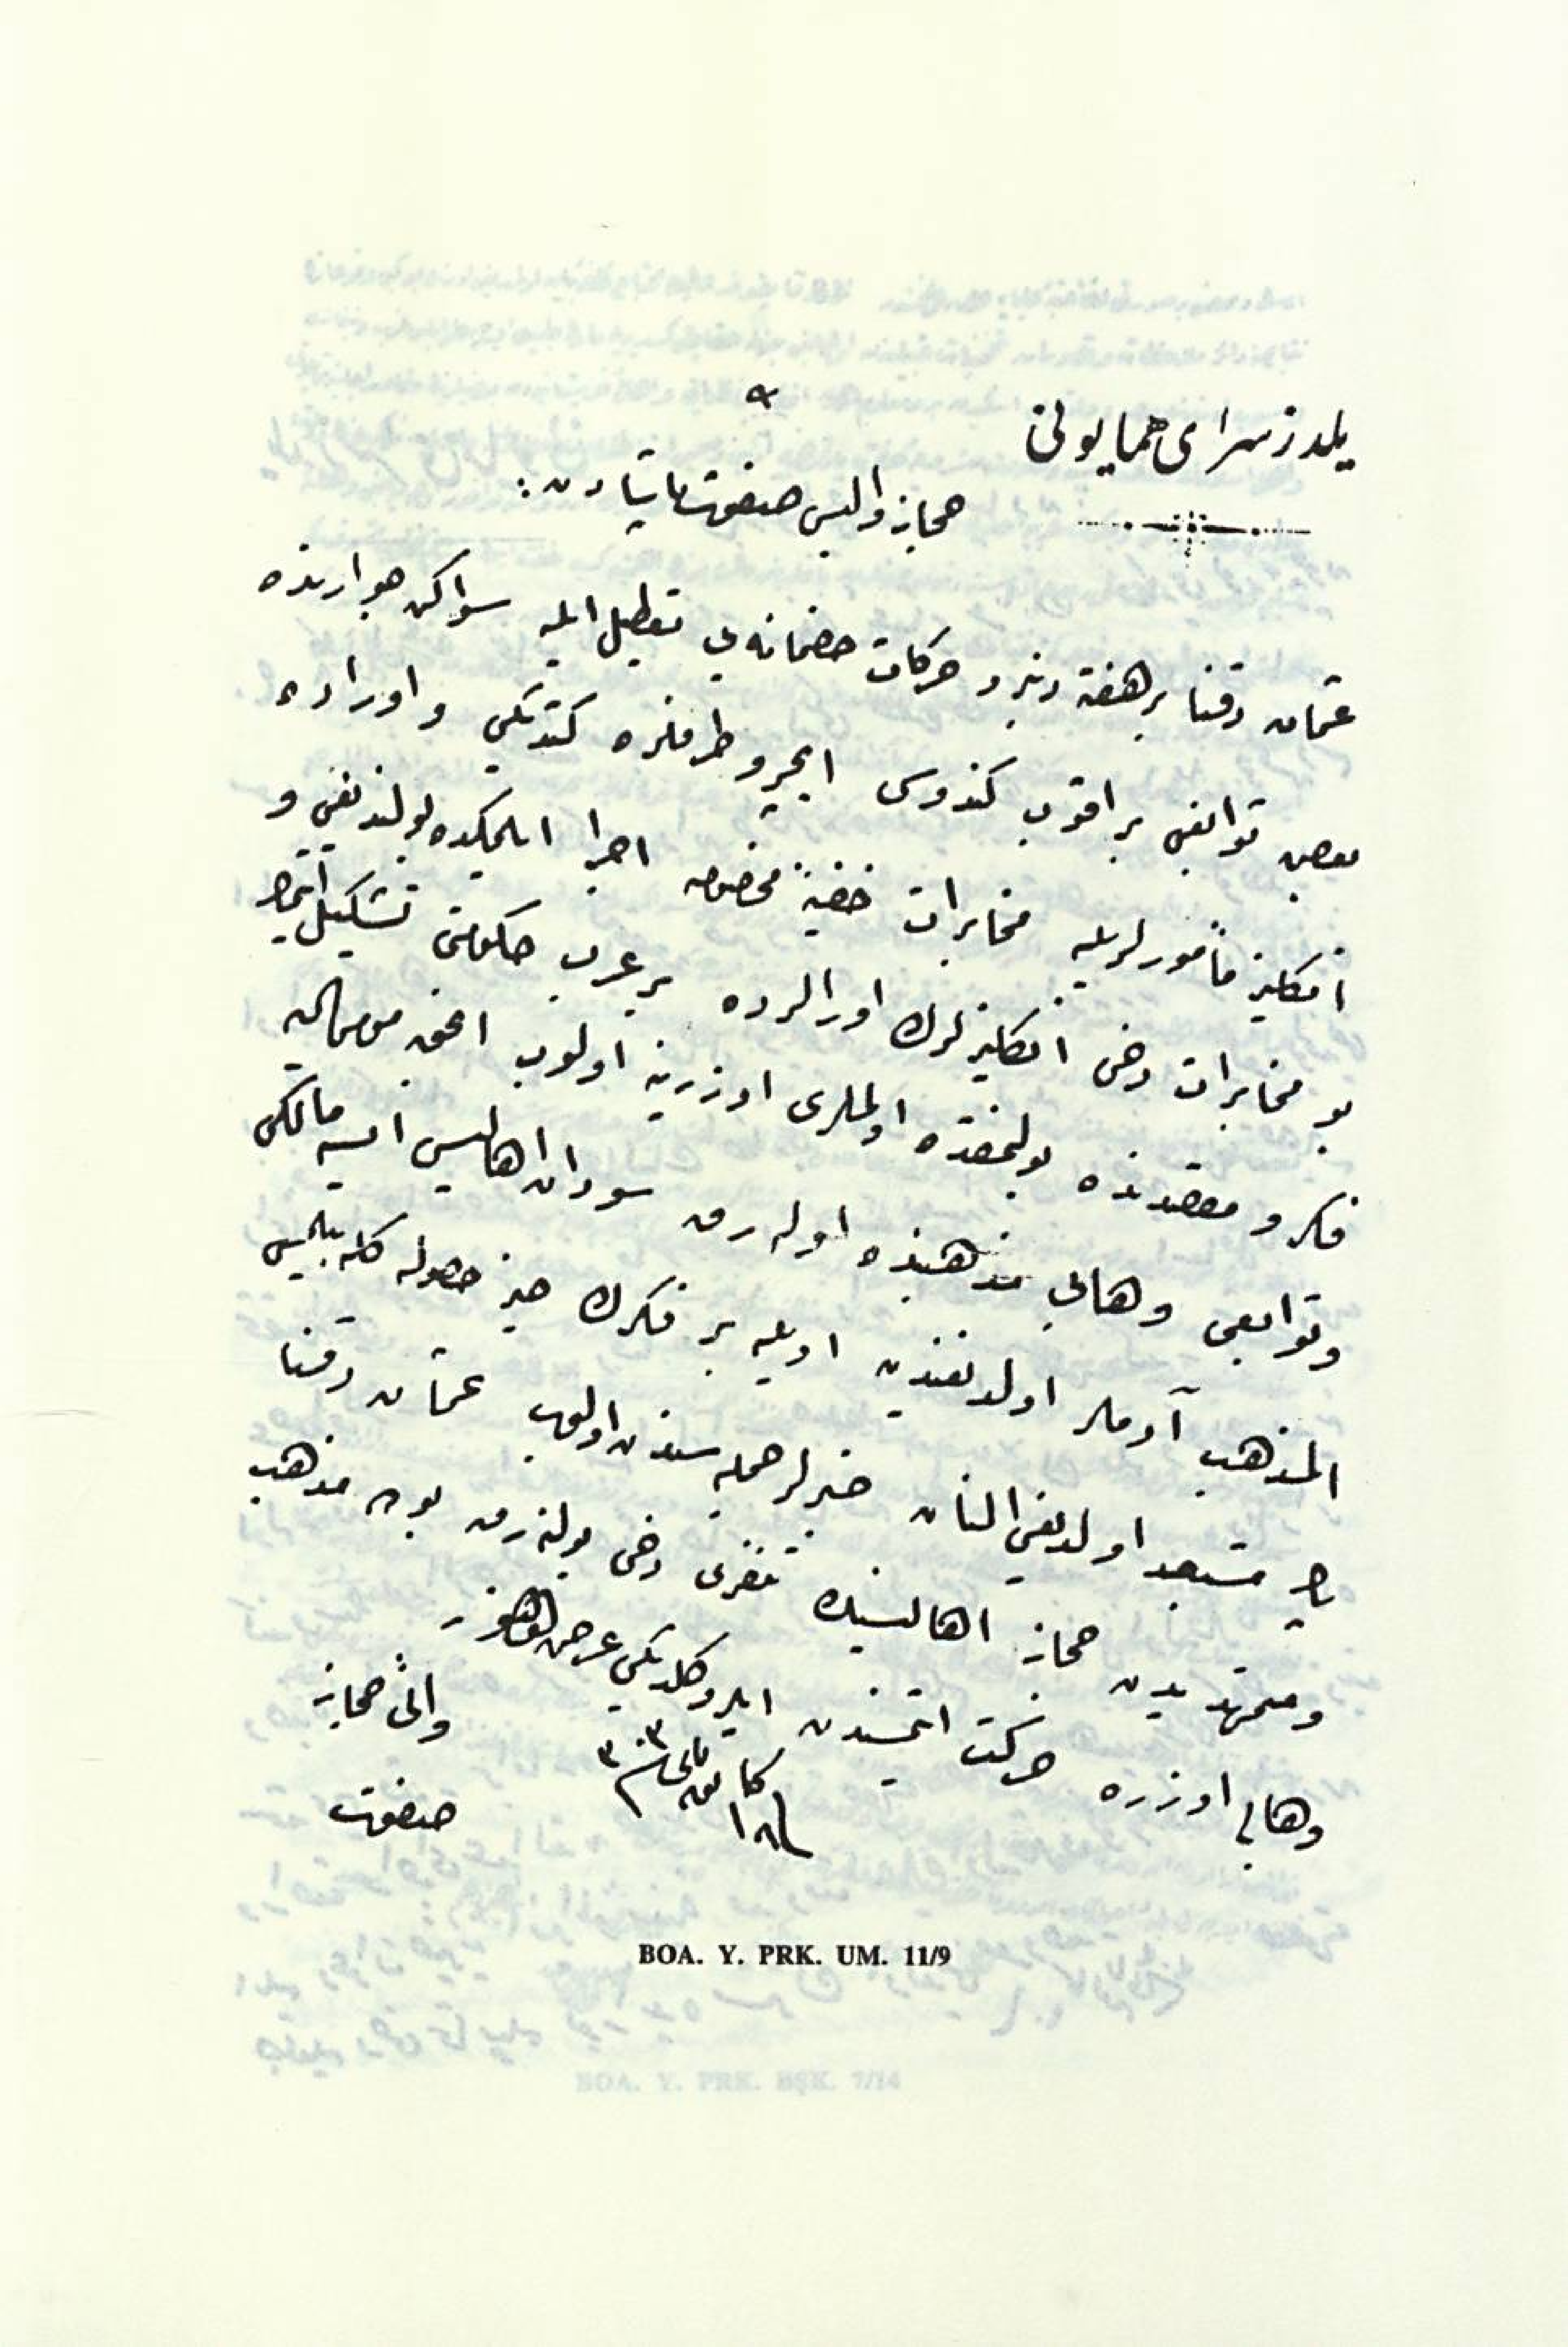 یلدز سرای همایونی
حجاز والیسی صفوت پاشادن:
عثمان دقنا بر هفته دنبرو حرکات خصمانه یی تعطیل ایله سواکن جوارنده
بعض توابعی براقوب کندوسی ایچرو طرفلره کتدیکی و اوراده
انکلیز مأمورلریله مخابرات خفیهٔ مخصوصه اجرا ایلمکده بولندیغی و
بو مخابرات دخی انکلیزلرك اورالرده بر عرب حکومتی تشکیل ایتمك
فکر و مقصدنده بولنمقده اولملری اوزرینه اولوب انجق مومى اليه
وتوابعی وهابی مذهبنده اوله رق سودان اهالیسی ایسه مالکی
المذهب آدملر اولدیغندن اویله بر فکرك حیز حصوله کله بیلمسی
پك مستبعد اولدیغی النان خبرلر جمله سندن اولوب عثمان دقنا
ومتمهدیدن حجاز اهالیسنك تنفری دخی بولنه رق بونك مذهب
وهابی اوزره حرکت ایتمسندن ایلرو کلدیکی عرض اولنور
فی ١٨ کانون ثانی سنه ٣٠٣
والیٔ حجاز
صفوت
BOA. Y. PRK. UM. 11/9